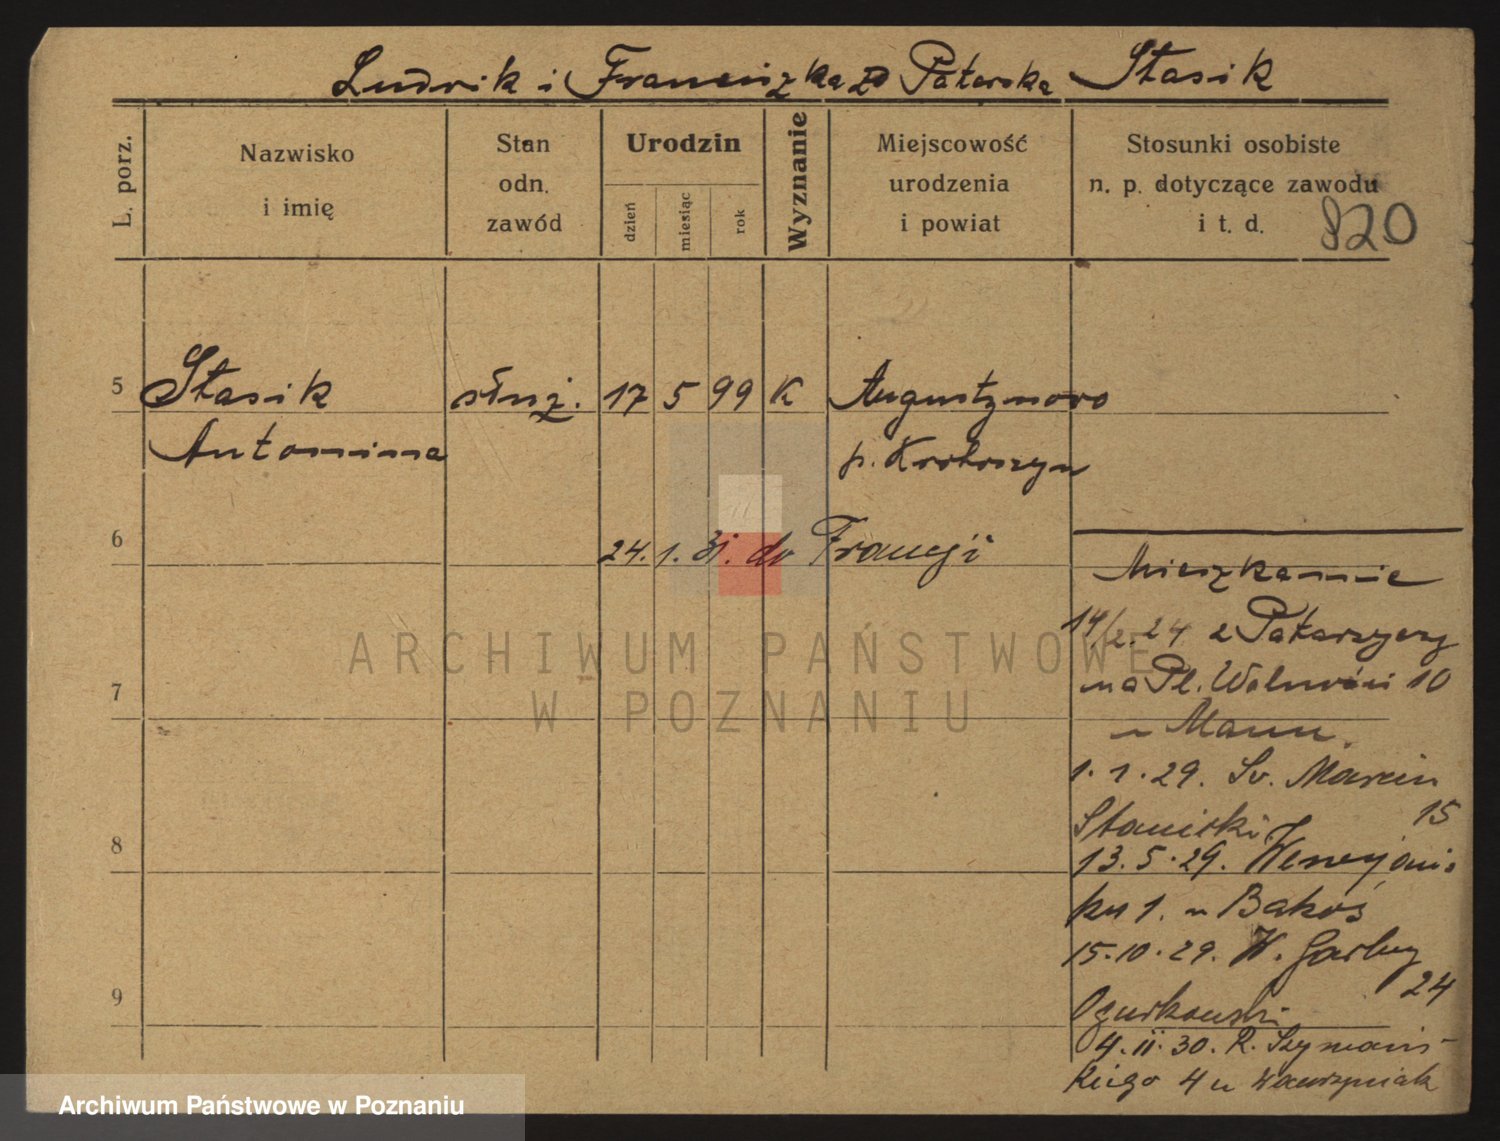 Ludwik i Franciszka zd Patarska Stasik
L. porz.
Nazwisko
i imię
Stan
odn.
zawód
Urodzin
dzień
miesiąc
rok
Wyznanie
Miejscowość
urodzenia
i powiat
Stosunki osobiste
n. p. dotyczące zawodu
i t. d.
820
5 Stasik służ. 17 5 99 K Augustynowo
Antonina p. Krotoszyn
6 24. 1. 31. do Francji
Mieszkanie
14/2. 24 z
7 na Pl. Wolności 10
u Mann.
1. 1. 29. Św. Marcin
15
8
13. 5. 29.
ku 1. u Bakoś
15. 10. 29. W. Garbary
24
9
Ogurkowski
4. II. 30. R. Szymańs-
kiego 4 u Wawrzyniak
ARCHIWUM PAŃSTWOWE
W POZNANIU
Archiwum Państwowe w Poznaniu